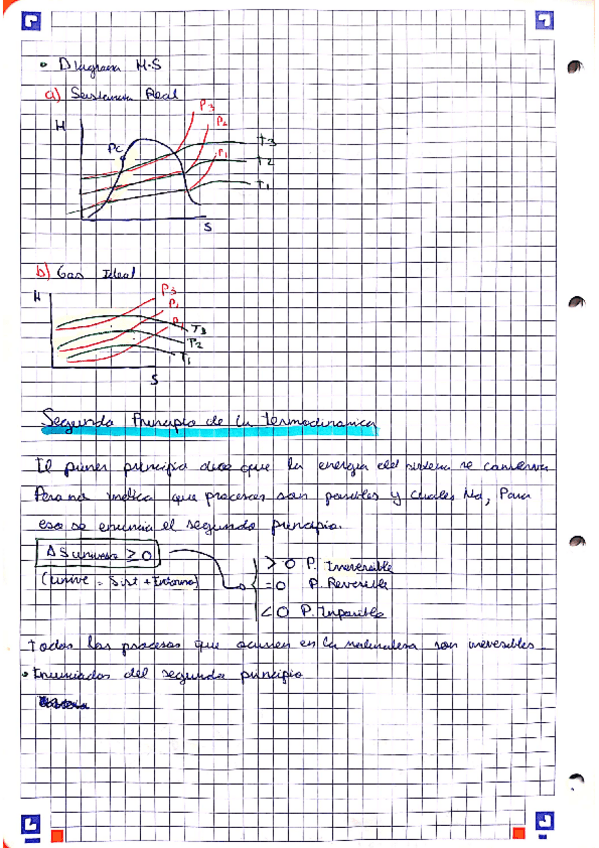 • Diagrama H-S
a) Sustancia Real
H
P3
P2
P1
PC
T3
T2
T1
S
b) Gas Ideal
H
P3
P1
P1
T3
P2
T1
S
Segundo Principio de la termodinámica
El primer principio dice que la energía del sistema se conserva
Pero no indica que procesos son posibles y cuales No, Para
eso se enuncia el segundo principio.
ΔS universo ≥ 0
(unive = Sist + Entorno)
> 0 P. Irreversible
= 0 P. Reversible
< 0 P. Imposible
todos los procesos que ocurren en la naturaleza son irreversibles
• Enunciados del segundo principio